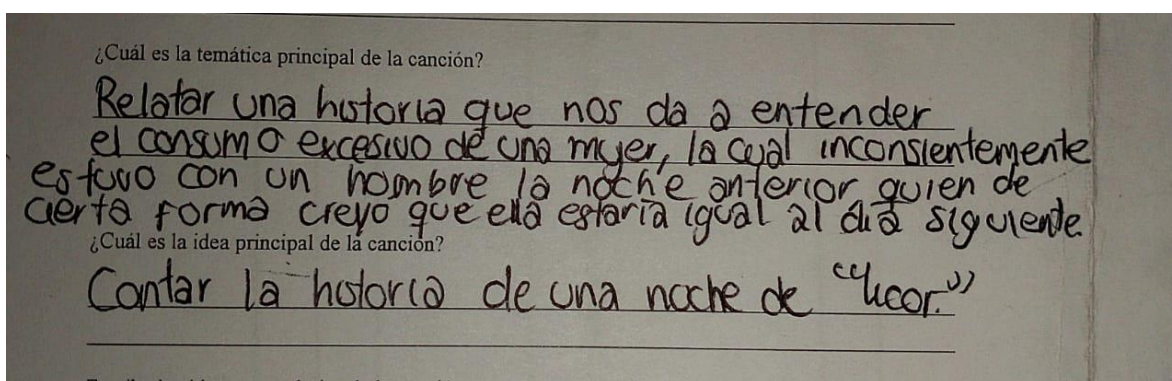 ¿Cuál es la temática principal de la canción?
Relatar una historia que nos da a entender
el consumo excesivo de una mujer, la cual inconsientemente
estuvo con un hombre la noche anterior quien de
cierta forma creyo que ella estaria igual al dia siguiente
¿Cuál es la idea principal de la canción?
Contar la historia de una noche de "licor."